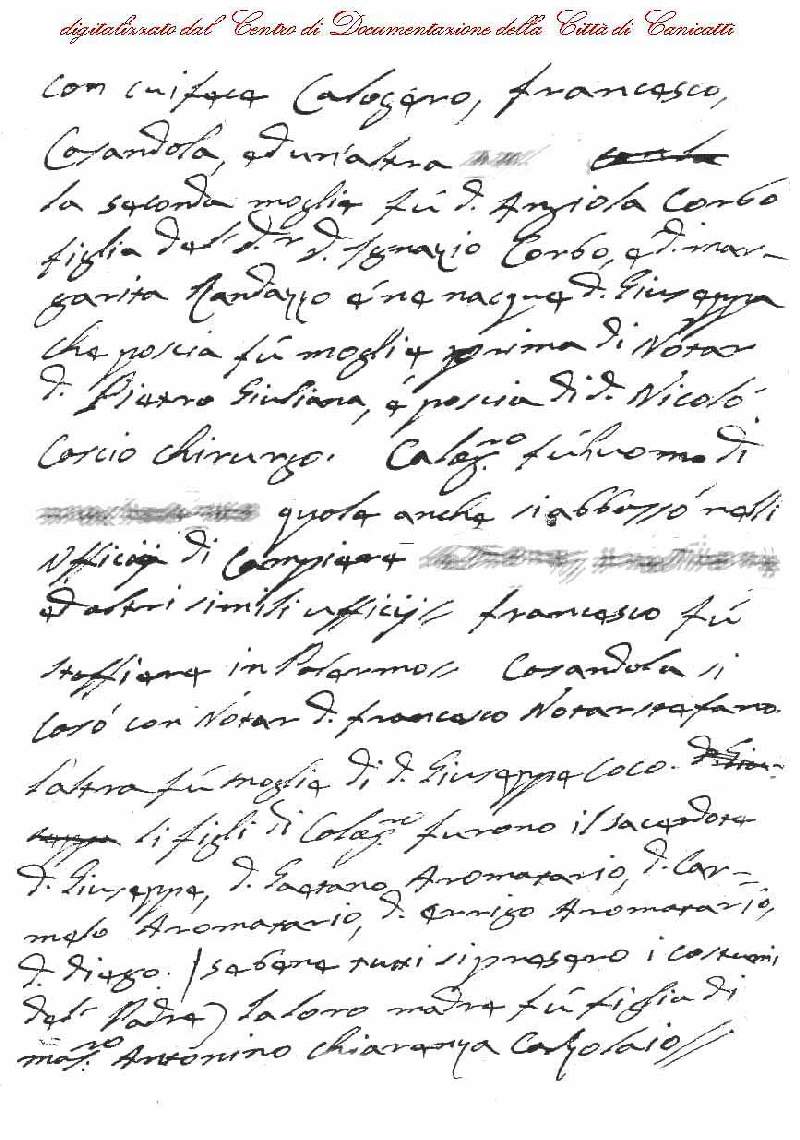 digitalizzato dal Centro di Documentazione della Città di Canicattì
con cui fece Calogéro, francesco,
Casandola, ed un'altra
la seconda moglie fú d. Anziola Corbo
figlia del d.r d. Ignazio Corbo, e d. mar-
garita Randazzo é ne nacque d. Giuseppa
che poscia fú moglie prima di Nótar
d. Pietro Giuliana, é poscia di d. Nicoló
Coscio chirurgo. Calog.ro fú huomo di
quale anche si abbassó nelli
Ufficij di Campiere
ed altri simili ufficij// francesco fú
staffiere in Palermo// Casandola si
casó con Nótar d. francesco Notarstefano
l'altra fú moglie di d. Giuseppe Coco.
li figli di Calog.ro furono il sacerdote
d. Giuseppe, d. Gaetano Aromatario, d. Car-
melo Aromatario, d. errigo Aromatario,
d. diego. (sebene tutti si presero i costumi
del Padre) la loro madre fú figlia di
mas.ro Antonino Chiarenza Calzolaio//